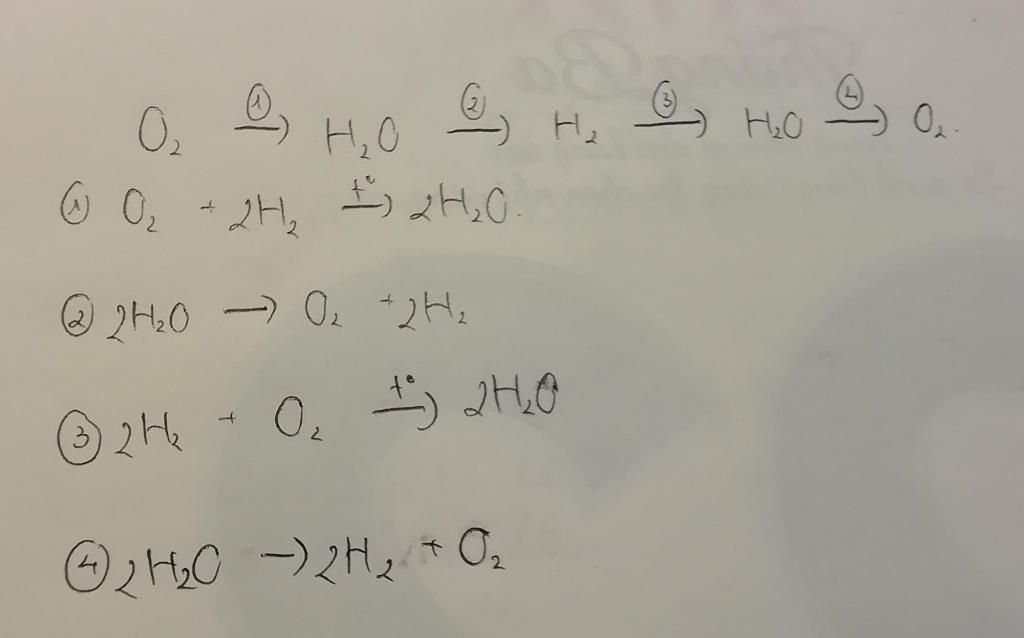 O₂ ①→ H₂O ②→ H₂ ③→ H₂O ④→ O₂.
① O₂ + 2H₂ t°→ 2H₂O.
② 2H₂O → O₂ + 2H₂
③ 2H₂ + O₂ t°→ 2H₂O
④ 2H₂O → 2H₂ + O₂